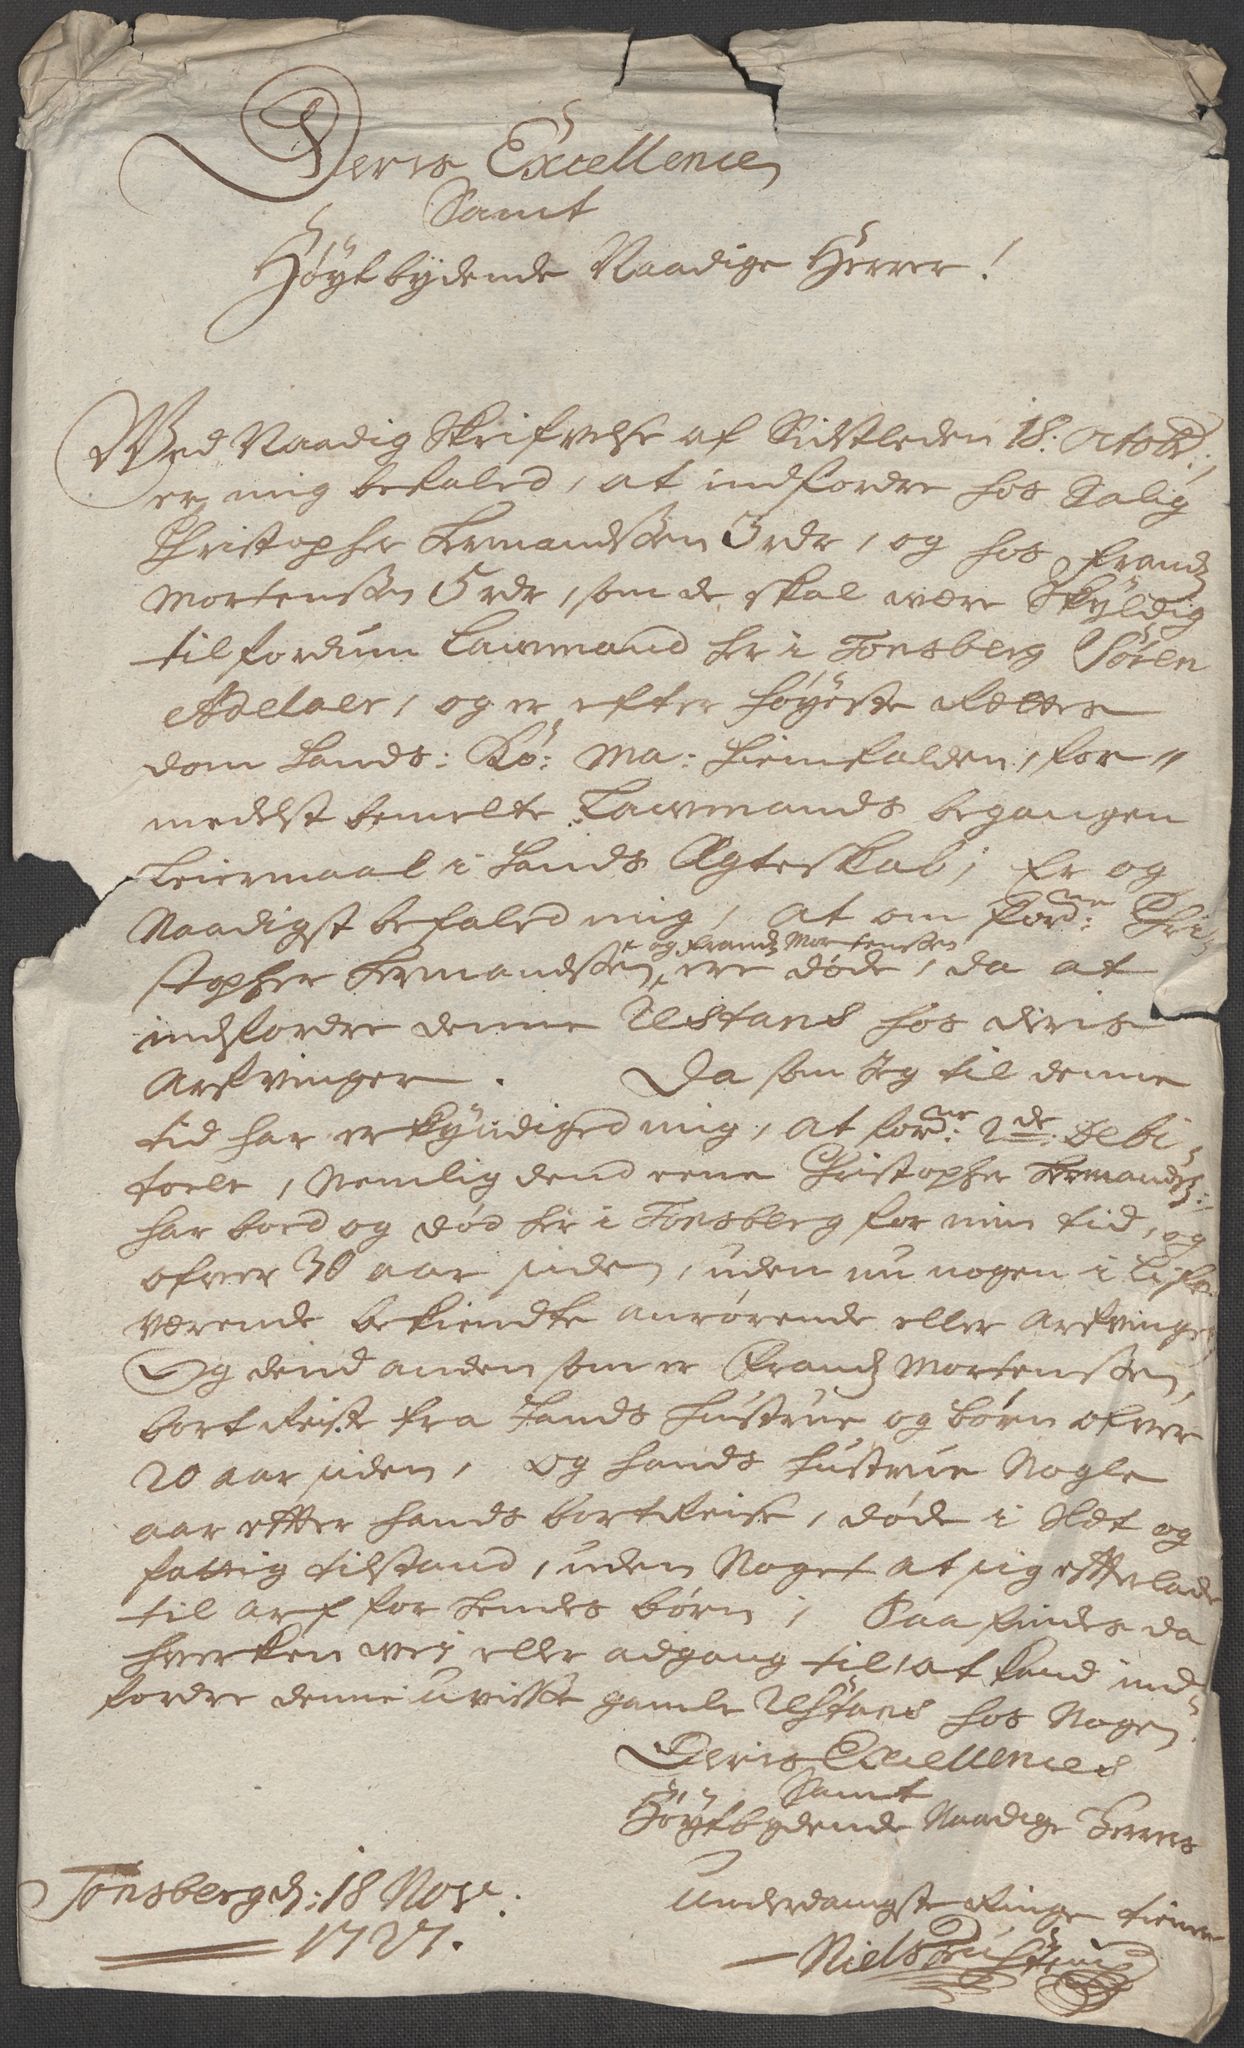 Deris Excellence
Samt
Høÿtbÿdende Naadige Herrer!
Wed Naadig Skrifvelse af Sidstleden 18. octobr:,
er mig befaled, at indfordre hos Salig
Christopher Hermandssen 3 rdr, og hos Frandz
Mortenssen 5 rdr, som de skal være Skÿldig
til fordum Lawmand her i Tonsberg Søren
Adelaer, og er efter høÿeste Rettes
dom Hands: Kô: Ma: hiemfalden, for-
medelst bemelte Lawmands begangen
Leiermaal i Hands Ægteskab; Er og
Naadigst befaled mig, at om fordne: Chri-
stopher Hermandssen og Frandz Mortenssen ere døde, da at
indfordre denne Restans hos deris
Arfvinger. Da som Jeg til denne
tid har erkÿndiged mig, at fordne: 2de Debi-
torer, Nemlig dend eene Christopher Hermandsz:
har boed og død her i Tonsberg for min tid, og
ofver 30 aar siden, uden nu nogen i Lifve
værende bekiendte anrørende eller Arfvinger,
Og dend anden som er Frandz Mortenssen,
bortReiste fra Hands Hustrue og børn ofver
20 aar siden, og hands Hustrue Nogle
aar efter hands bortReise, døde i Slet og
fattig tilstand, uden Noget at sig efterlade
til arf for hendes børn; Saa findes da
hverken vej eller adgang til, at kand ind-
fordre denne uvisse gamle Restans hos Nogen.
Deris Excellences
Samt
Høÿtbydende Naadige Herrers
Tonsberg d: 18 Nove:
1727.
Underdanigste Ringe tiener
Niels